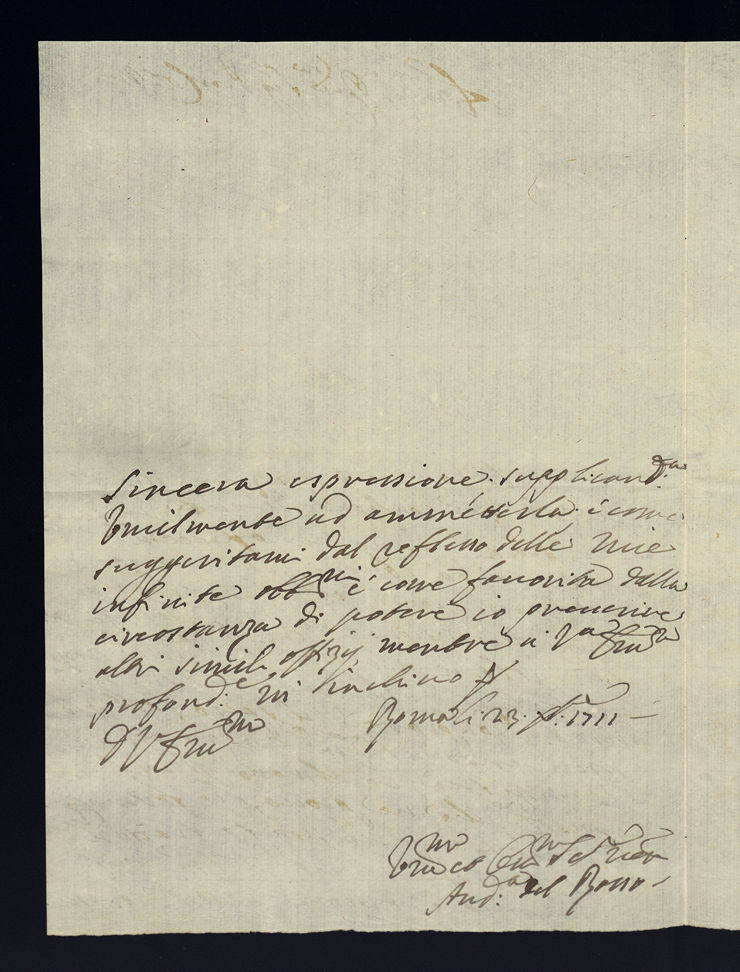 sincera espressione supplicand.la
Umilmente ad ammetterla è come
suggeritami dal reflesso delle mie
infinite obb.ni è come favorita dalla
circostanza di potere io prevenire
altri simili offizij mentre a V.a Em.za
profond.e m'inchino
D V Em.za Roma li 23 1711
Um.mo et
And.a del Rosso